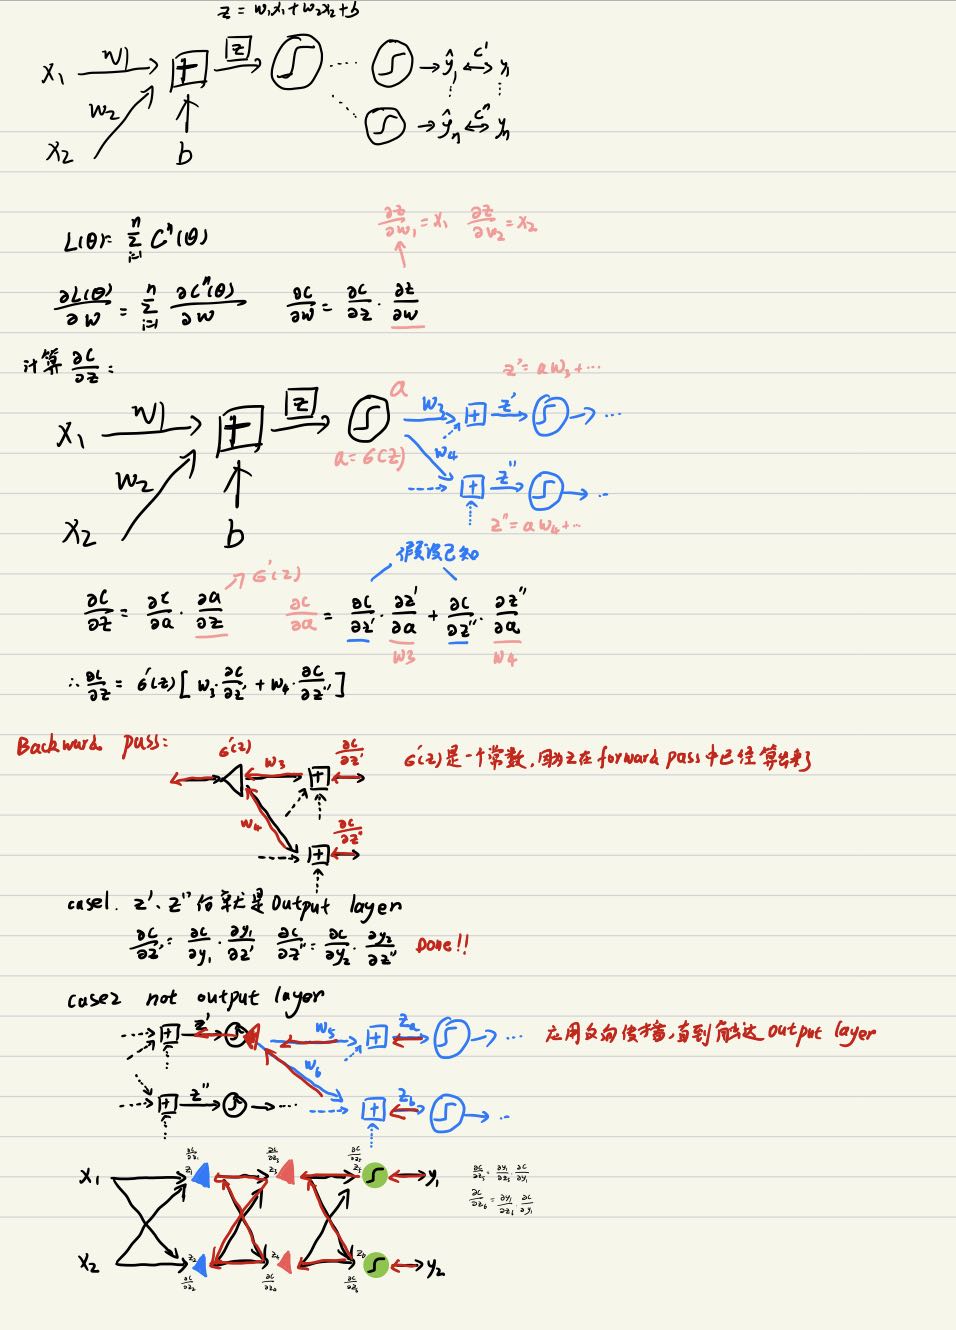 z = w₁x₁ + w₂x₂ + b
x₁ w₁ + z ŷ₁ c' y₁
w₂
x₂ b ŷn cⁿ yn
∂z/∂w₁ = x₁ ∂z/∂w₂ = x₂
L(θ) = Σ(i=1→n) Cⁿ(θ)
∂L(θ)/∂w = Σ(i=1→n) ∂Cⁿ(θ)/∂w ∂C/∂w = ∂C/∂z · ∂z/∂w
计算 ∂C/∂z :
z' = aw₃ + ...
x₁ w₁ + z a w₃ + z' ...
w₂ a = σ(z) w₄
x₂ b + z'' ...
z'' = aw₄ + ...
假设已知
σ'(z)
∂C/∂z = ∂C/∂a · ∂a/∂z ∂C/∂a = ∂C/∂z' · ∂z'/∂a + ∂C/∂z'' · ∂z''/∂a
w₃ w₄
∴ ∂C/∂z = σ'(z) [ w₃ · ∂C/∂z' + w₄ · ∂C/∂z'' ]
Backward pass:
σ'(z) w₃ + ∂C/∂z' σ'(z)是一个常数,因为z在forward pass中已经算出来了
w₄ + ∂C/∂z''
case1. z'、z''后就是Output layer
∂C/∂z' = ∂C/∂y₁ · ∂y₁/∂z' ∂C/∂z'' = ∂C/∂y₂ · ∂y₂/∂z'' Done!!
case2 not output layer
+ z' w₅ + za ... 应用反向传播,直到抵达output layer
w₆
+ z'' ... + zb ...
∂C/∂z₁ ∂C/∂z₃ ∂C/∂z₅
x₁ z₁ z₃ z₅ y₁ ∂C/∂z₅ = ∂y₁/∂z₅ · ∂C/∂y₁
∂C/∂z₆ = ∂y₁/∂z₆ · ∂C/∂y₁
x₂ z₂ z₄ z₆ y₂
∂C/∂z₂ ∂C/∂z₄ ∂C/∂z₆